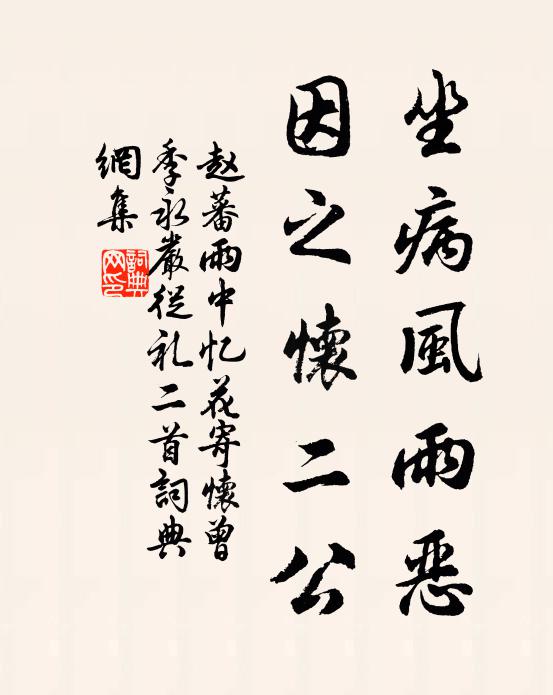 坐病風雨惡
因之懷二公
赵蕃雨中忆花寄懷曾
季永嚴從礼二首詞典
網集
詞典
网印